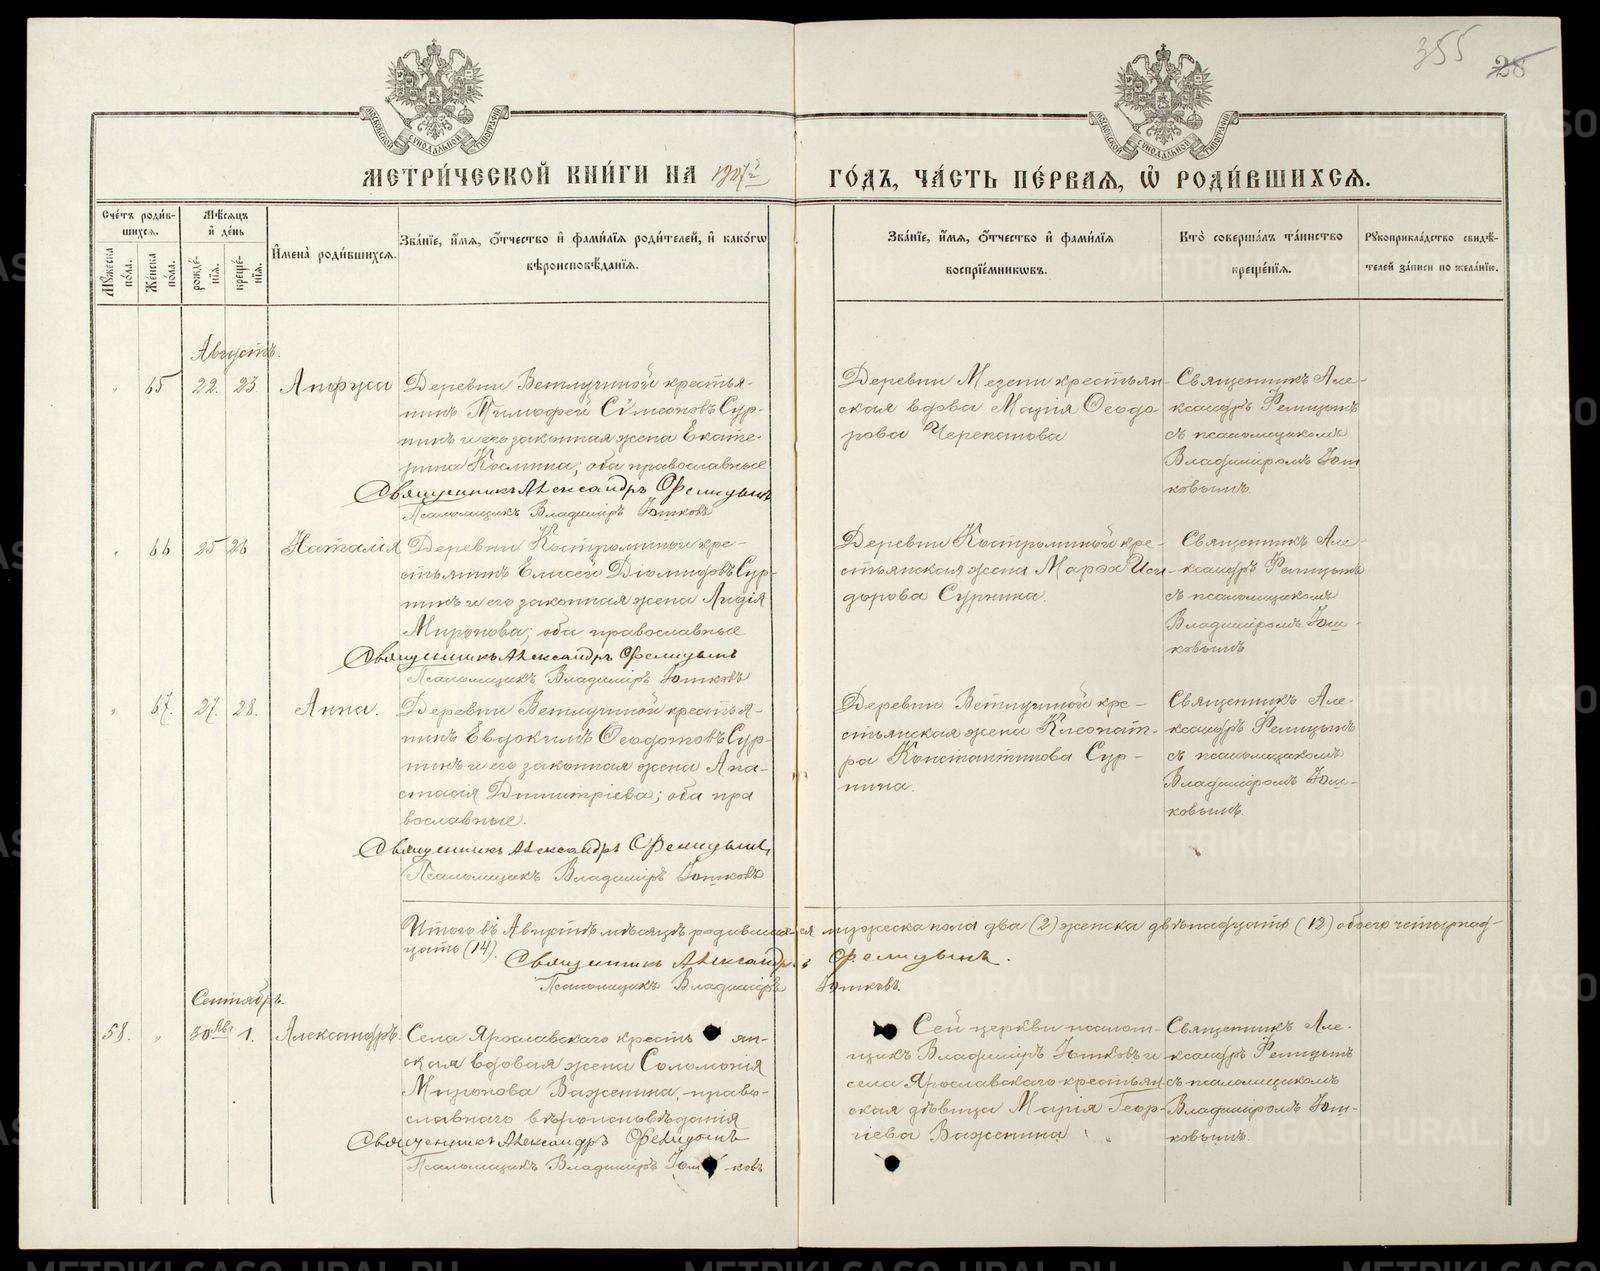 355 28
МЕТРИ́ЧЕСКОЙ КНИ́ГИ НА 1907й ГО́ДЪ, ЧА́СТЬ ПЕ́РВАЯ, Ѿ РОДИ́ВШИХСЯ.
Сче́тъ роди́в-
шихся.
Мꙋ́жеска по́ла.
Же́нска по́ла.
Мѣ́сяцъ и҆ де́нь
рожде́-нїя.
креще́-нїя.
И҆мена̀ роди́вшихся.
Зва́нїе, и҆́мя, ѻ҆́тчество и҆ фами́лїя роди́телей, и҆ како́гѡ
вѣроисповѣ́данїя.
Зва́нїе, и҆́мя, ѻ҆́тчество и҆ фами́лїя
воспрїе́мникѡвъ.
Кто̀ соверша́лъ та́инство
креще́нїя.
Рꙋкоприкла́дство свидѣ́-
телей за́писи по жела́нїю.
Августъ.
" 65 22. 23 Анфуса
Деревни Ветлугиной крестья-
нинъ Тимофей Сѵмеоновъ Сур-
нинъ и его законная жена Екате-
рина Космина; оба православные
Священникъ Александръ Фелицынъ
Псаломщикъ Владиміръ
Деревни Мезени крестьян-
ская вдова Марія Ѳеодо-
рова Черепанова
Священникъ Але-
ксандръ Фелицынъ
съ псаломщикомъ
Владиміромъ
ковымъ.
" 66 25 26 Наталія
Деревни Костромины кре-
стьянинъ Елисей Діомидовъ Сур-
нинъ и его законная жена Лидія
Миронова; оба православные
Священникъ Александръ Фелицынъ
Псаломщикъ Владиміръ
Деревни Костроминой кре-
стьянская жена Марѳа Иси-
дорова Сурнина.
Священникъ Але-
ксандръ Фелицынъ
съ псаломщикомъ
Владиміромъ
ковымъ
" 67. 27. 28. Анна.
Деревни Ветлугиной крестья-
нинъ Евдокимъ Ѳеодотовъ Сур-
нинъ и его законная жена Ана-
стасія Димитріева; оба пра
вославные.
Священникъ Александръ Фелицынъ
Псаломщикъ Владиміръ
Деревни Ветлугиной кре-
стьянская жена Клеопат-
ра Константинова Сур-
нина.
Священникъ Але-
ксандръ Фелицынъ
съ псаломщикомъ
Владиміромъ
ковымъ.
Итого въ Августѣ мѣсяцѣ родившихся мужеска пола два (2) женска двѣнадцать (12) обоего четырнад-
цать (14).
Священникъ Александръ Фелицынъ.
Псаломщикъ Владиміръ
Сентябрь.
58. " 30 Авг 1. Александръ.
Села Ярославскаго крестьян-
ская вдовая жена Соломонія
Миронова Важенина, право-
славнаго вѣроисповѣданія
Священникъ Александръ Фелицынъ
Псаломщикъ Владиміръ
Сей церкви псалом-
щикъ Владиміръ и
села Ярославскаго крестьян
ская дѣвица Марія Геор-
гіева Важенина
Священникъ Але-
ксандръ Фелицынъ
съ псаломщикомъ
Владиміромъ
ковымъ.
METRIKI.GASO-URAL.RU